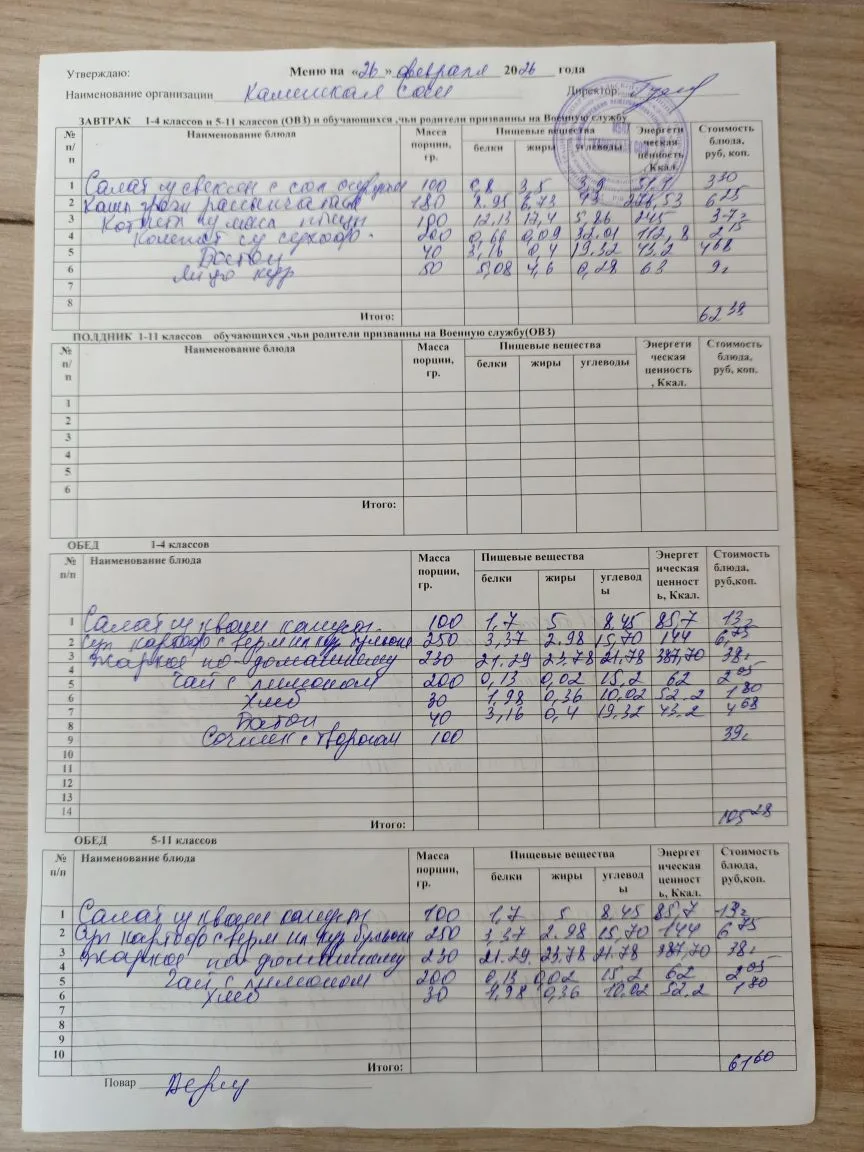 Утверждаю: Меню на «26» февраля 2026 года
Наименование организации Каменская сош Директор:
ЗАВТРАК 1-4 классов и 5-11 классов (ОВЗ) и обучающихся ,чьи родители призванны на Военную службу
№ п/п Наименование блюда Масса порции, гр. Пищевые вещества белки жиры углеводы Энергетическая ценность, Ккал. Стоимость блюда, руб, коп.
1 Салат из свеклы с сол огурцом 100 0,8 3,5 3,9 51,1 3 30
2 Каша гречн рассыпчатая 180 8.95 6,73 43 276,53 6 25
3 Котлет из мяса птицы 100 12,13 12,4 5,86 245
4 Компот из сухофр. 200 0,66 0,09 32,01 112,8 2 15
5 Батон 40 3,16 0,4 19,32 43,2 4 68
6 Яйцо кур 50 5,08 4,6 0,28 63 9
7
8
Итого: 62 38
ПОЛДНИК 1-11 классов обучающихся ,чьи родители призванны на Военную службу(ОВЗ)
№ п/п Наименование блюда Масса порции, гр. Пищевые вещества белки жиры углеводы Энергетическая ценность, Ккал. Стоимость блюда, руб, коп.
1
2
3
4
5
6
Итого:
ОБЕД 1-4 классов
№ п/п Наименование блюда Масса порции, гр. Пищевые вещества белки жиры углеводы Энергетическая ценность, Ккал. Стоимость блюда, руб,коп.
1 Салат из кваш капусты 100 1,7 5 8,45 85,7 13
2 Суп картоф с верм на кур бульоне 250 3,37 2.98 15,70 144 6,75
3 Жаркое по-домашнему 230 21.29 23,78 21,78 387,70 38
4
5 Чай с лимоном 200 0,13 0,02 15,2 62 2 05
6 Хлеб 30 1,98 0,36 10,02 52,2 1 80
7 Батон 40 3,16 0,4 19,32 43,2 4 68
8
9 Сочник с творогом 100 39
10
11
12
13
14
Итого: 105 28
ОБЕД 5-11 классов
№ п/п Наименование блюда Масса порции, гр. Пищевые вещества белки жиры углеводы Энергетическая ценность, Ккал. Стоимость блюда, руб,коп.
1 Салат из кваш капусты 100 1,7 5 8,45 85,7 13
2 Суп картоф с верм на кур бульоне 250 3,37 2.98 15,70 144 6 75
3 Жаркое по-домашнему 230 21.29 23,78 21.78 387,70 38
4
5 Чай с лимоном 200 0,13 0,02 15,2 62 2 05
6 Хлеб 30 1,98 0,36 10,02 52,2 1 80
7
8
9
10
Итого: 61 60
Повар